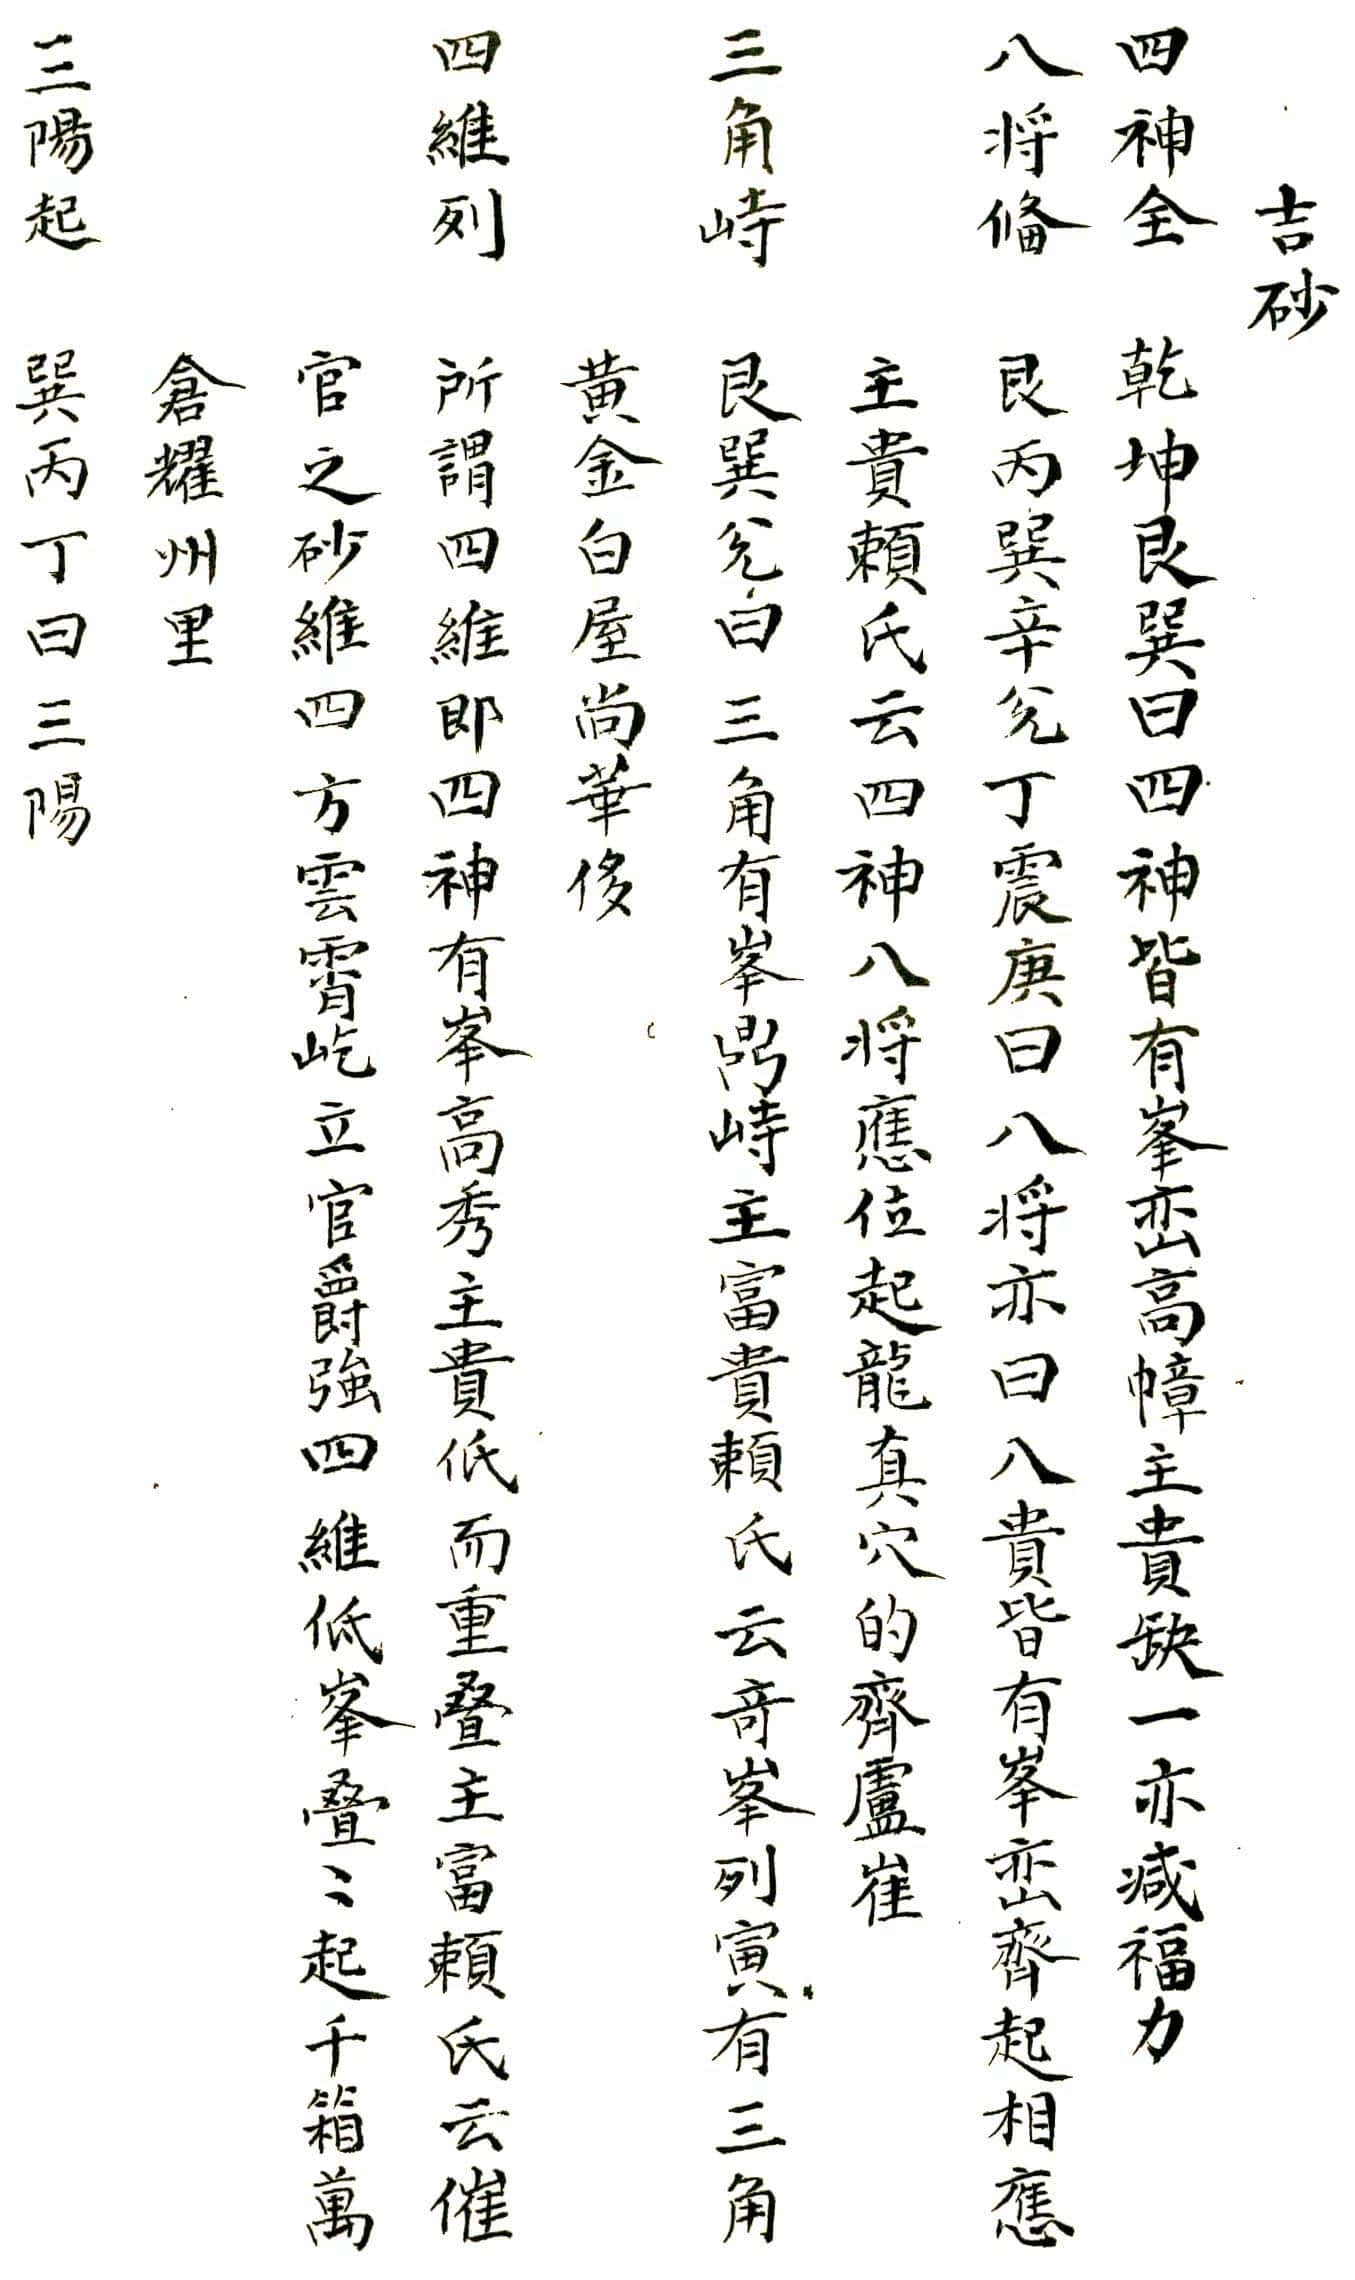 吉砂
四神全　乾坤艮巽曰四神皆有峯巒高幛主貴缺一亦减福力
八将俻　艮丙巽辛兌丁震庚曰八将亦曰八貴皆有峯巒齊起相應
主貴頼氏云四神八将應位起龍真穴的齊盧崔
三角峙　艮巽兌曰三角有峯鼎峙主富貴頼氏云奇峯列寅有三角
黄金白屋尚華侈
四維列　所謂四維即四神有峯高秀主貴低而重叠主富頼氏云催
官之砂維四方雲霄屹立官爵強四維低峯叠〻起千箱萬
倉耀州里
三陽起　巽丙丁曰三陽